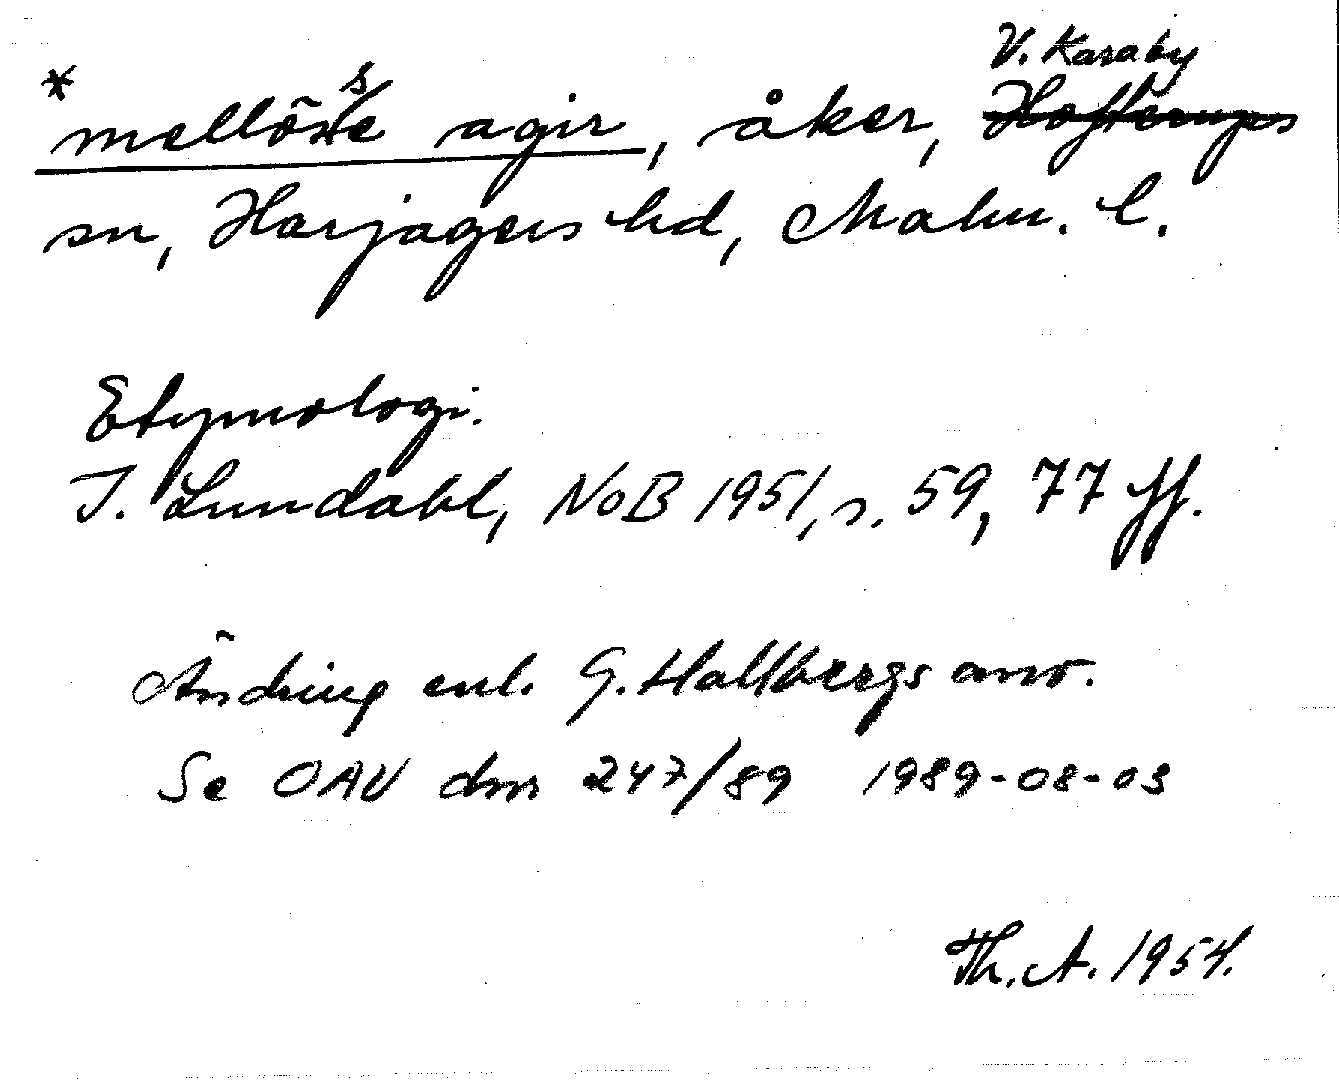 V. Karaby
* mellösse agir, åker, Hofterups
sn, Harjagers hd, Malm. l.
Etymologi.
I. Lundahl, NoB 1951, s. 59, 77 ff.
Ändring enl. G. Hallbergs anv.
Se OAU dnr 247/89 1989-08-03
Th. A. 1954.